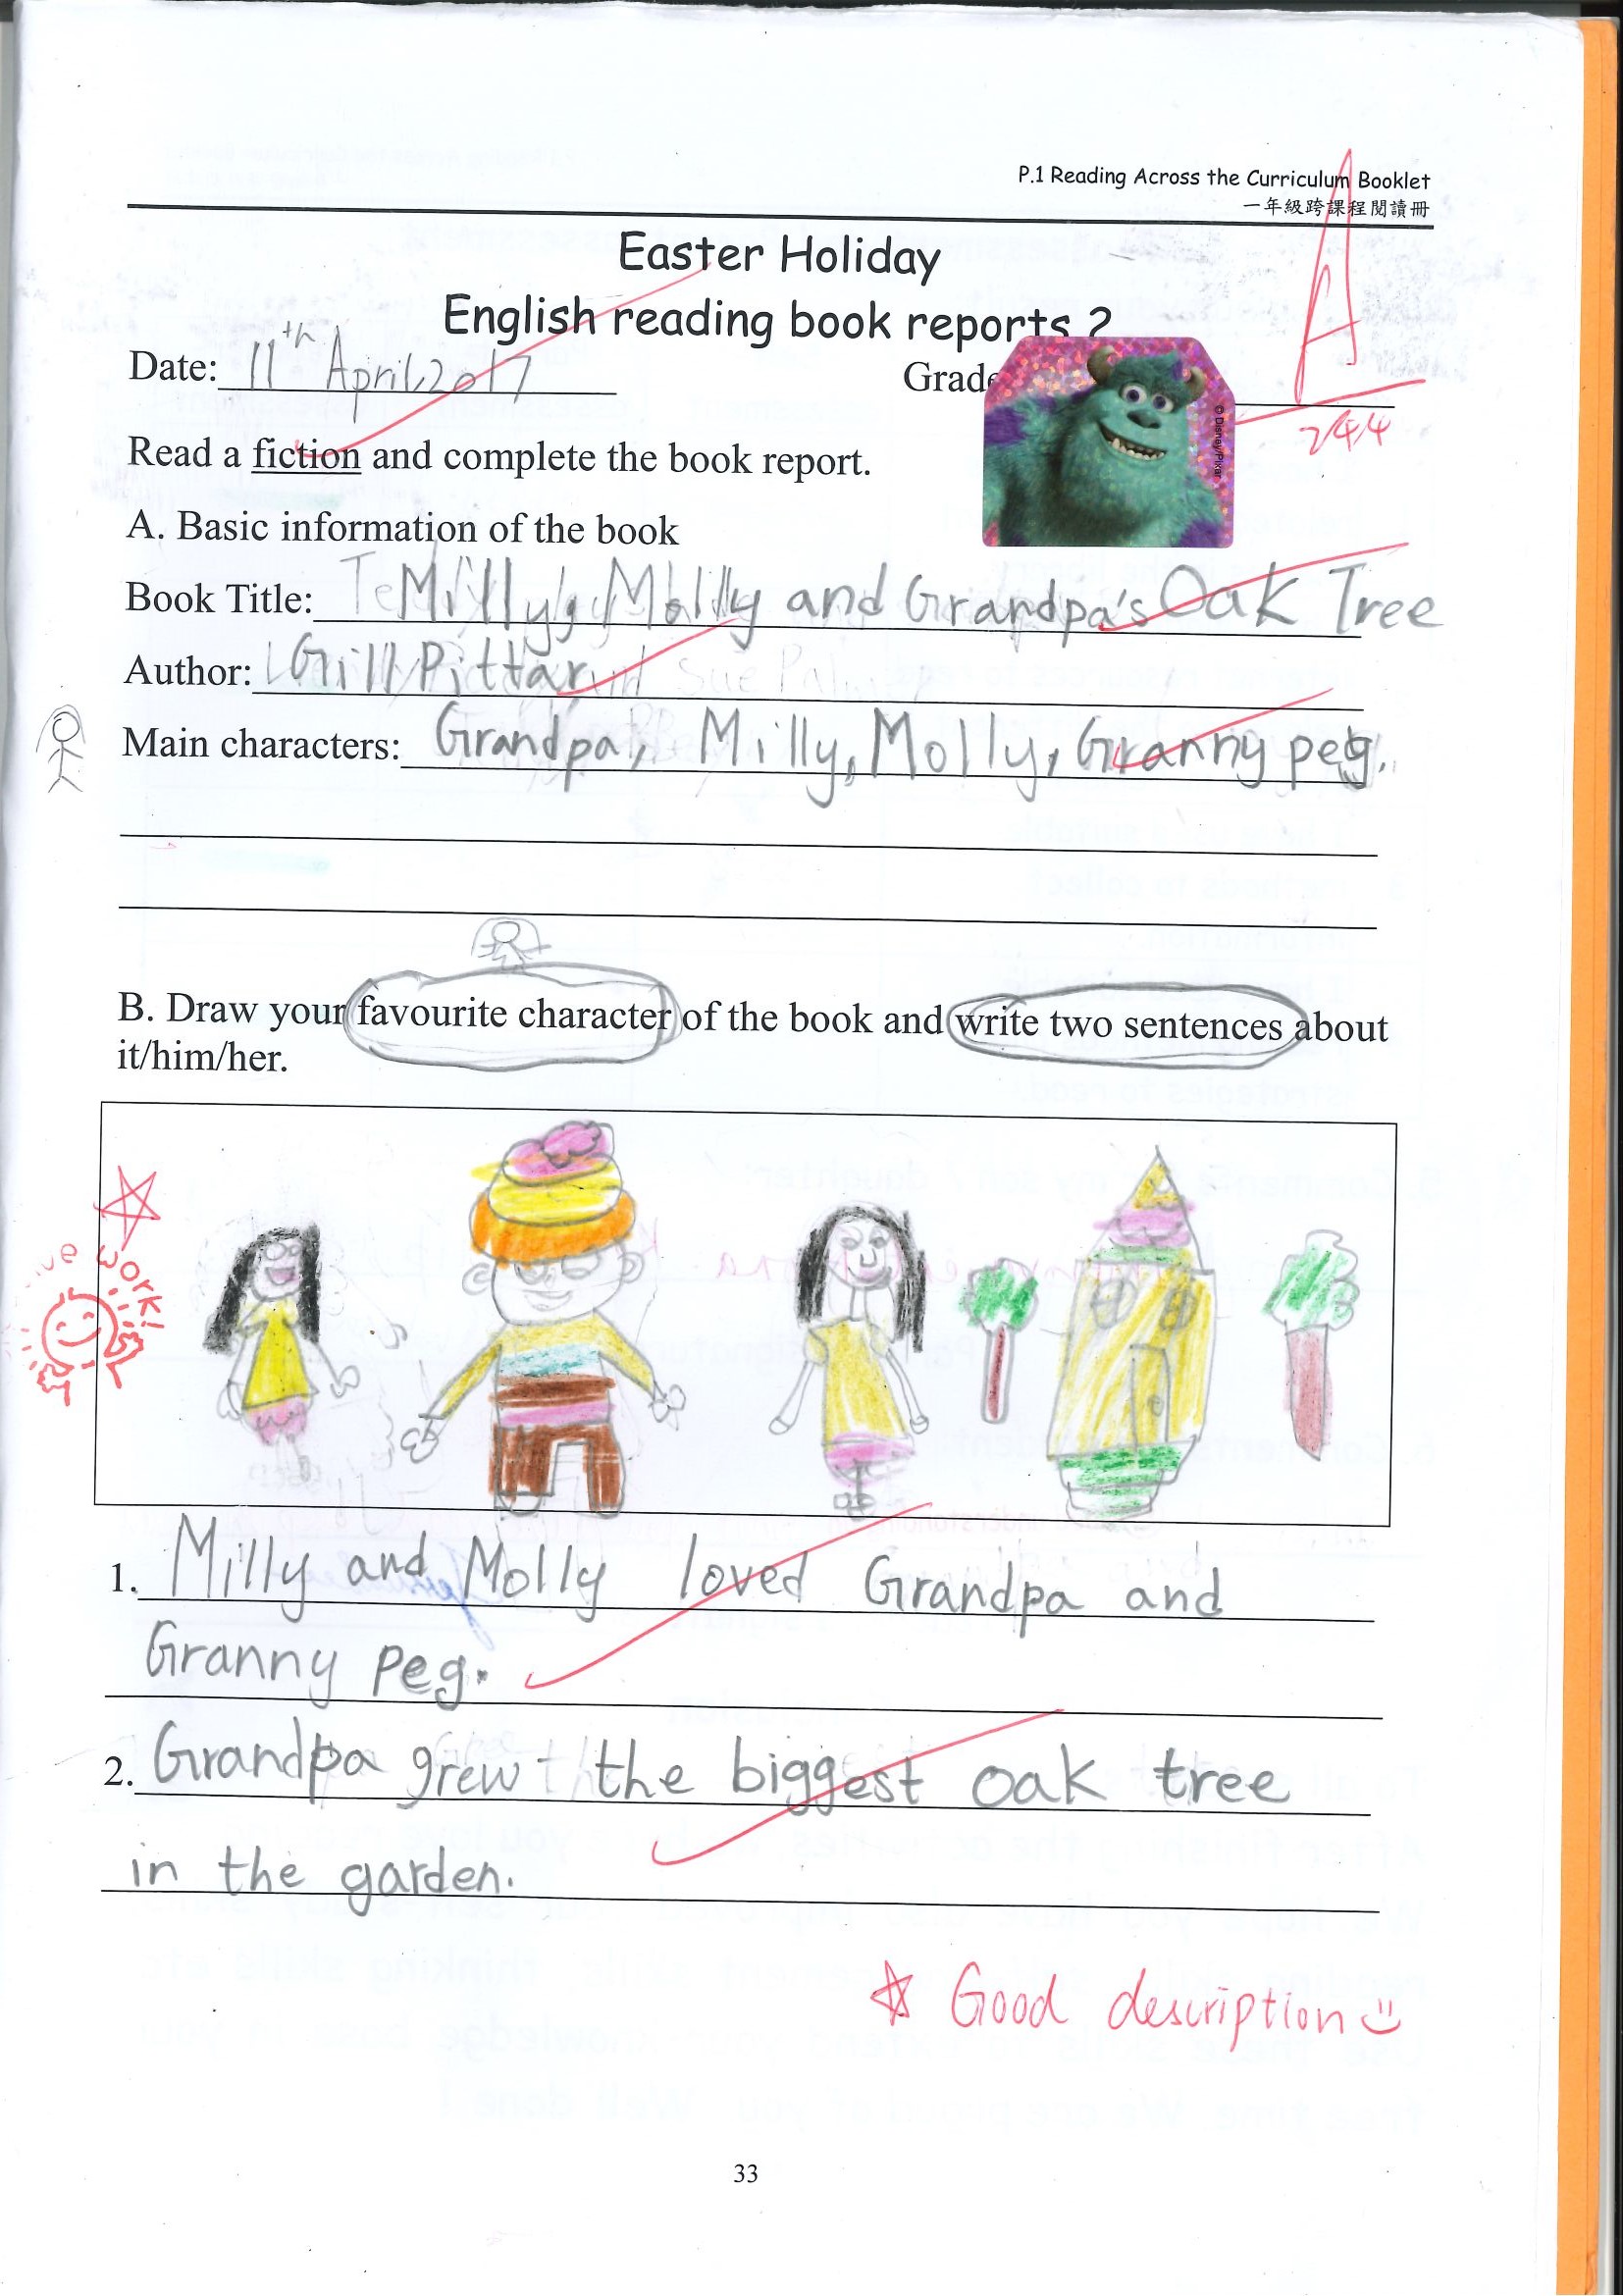 P.1 Reading Across the Curriculum Booklet
一年級跨課程閱讀冊
Easter Holiday
English reading book reports 2
Date: 11th April, 2017
Grade
A
24/4
©Disney/Pixar
Read a fiction and complete the book report.
A. Basic information of the book
Book Title: Milly, Molly and Grandpa's Oak Tree
Author: Gill Pittar
Main characters: Grandpa, Milly, Molly, Granny peg.
B. Draw your favourite character of the book and write two sentences about
it/him/her.
work!
1. Milly and Molly loved Grandpa and
Granny peg.
2. Grandpa grew the biggest oak tree
in the garden.
Good description
33